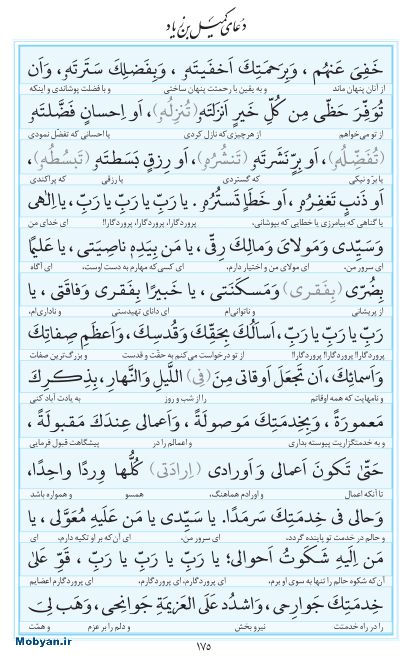 دعای کمیل بن زیاد
خَفِیَ عَنهُم ، وَبِرَحمَتِكَ اَخفَیتَهُ ، وَبِفَضلِكَ سَتَرتَهُ ، وَاَن
از آنان پنهان ماند و به یقین با رحمتت پنهان ساختی و با فضلت پوشاندی و اینکه
تُوَفِّرَ حَظّی مِن کُلِّ خَیرٍ اَنزَلتَهُ (تُنزِلُهُ) ، اَو اِحسانٍ فَضَّلتَهُ
از تو می‌خواهم از هرچیزی که نازل کردی یا احسانی که تفضّل نمودی
(تُفَضِّلُهُ) ، اَو بِرٍّ نَشَرتَهُ (تَنشُرُهُ) ، اَو رِزقٍ بَسَطتَهُ (تَبسُطُهُ) ،
یا برّ و نیکی که گستردی یا رزقی که پراکندی
اَو ذَنبٍ تَغفِرُهُ ، اَو خَطَأٍ تَستُرُهُ . یا رَبِّ یا رَبِّ یا رَبِّ ، یا اِلٰهی
یا گناهی که بیامرزی یا خطایی که بپوشانی، پروردگارا، پروردگارا، پروردگارا!! ای خدای من
وَسَیِّدی وَمَولایَ وَمالِكَ رِقّی ، یا مَن بِیَدِهِ ناصِیَتی ، یا عَلیمًا
ای سرور من، ای مولای من و اختیار دارم، ای کسی که مهارم به دست اوست، ای آگاه
بِضُرّی (بِفَقری) وَمَسکَنَتی ، یا خَبیرًا بِفَقری وَفاقَتی ، یا
از پریشانی و ناتوانی‌ام ای دانای تهیدستی و ناداری‌ام،
رَبِّ یا رَبِّ یا رَبِّ ، اَسأَلُكَ بِحَقِّكَ وَقُدسِكَ ، وَاَعظَمِ صِفاتِكَ
پروردگارا! پروردگارا! پروردگارا! از تو درخواست می‌کنم به حقّت و قدست و بزرگ‌ترین صفات
وَاَسمائِكَ ، اَن تَجعَلَ اَوقاتی مِنَ (فِی) اللَّیلِ وَالنَّهارِ ، بِذِکرِكَ
و نامهایت که همه اوقاتم را از شب و روز به یادت آباد کنی
مَعمورَةً ، وَبِخِدمَتِكَ مَوصولَةً ، وَاَعمالی عِندَكَ مَقبولَةً ،
و به خدمتگزاریت پیوسته بداری و اعمالم را در پیشگاهت قبول فرمایی
حَتّیٰ تَکونَ اَعمالی وَاَورادی (اِرادَتی) کُلُّها وِردًا واحِدًا ،
تا آنکه اعمال و اورادم هماهنگ، همسو و همواره باشد
وَحالی فی خِدمَتِكَ سَرمَدًا . یا سَیِّدی یا مَن عَلَیهِ مُعَوَّلی ، یا
و حالم در خدمت تو پاینده گردد. ای سرور من، ای آن‌که بر او تکیه دارم، ای
مَن اِلَیهِ شَکَوتُ اَحوالی؛ یا رَبِّ یا رَبِّ یا رَبِّ ، قَوِّ عَلیٰ
آن‌که شکوه حالم را تنها به سوی او برم، ای پروردگارم، ای پروردگارم، ای پروردگارم اعضایم
خِدمَتِكَ جَوارِحی ، وَاشدُد عَلَی العَزیمَةِ جَوانِحی ، وَهَب لِیَ
را در راه خدمتت نیرو بخش و دلم را بر عزم و همّت
Mobyan.ir
۱۷۵